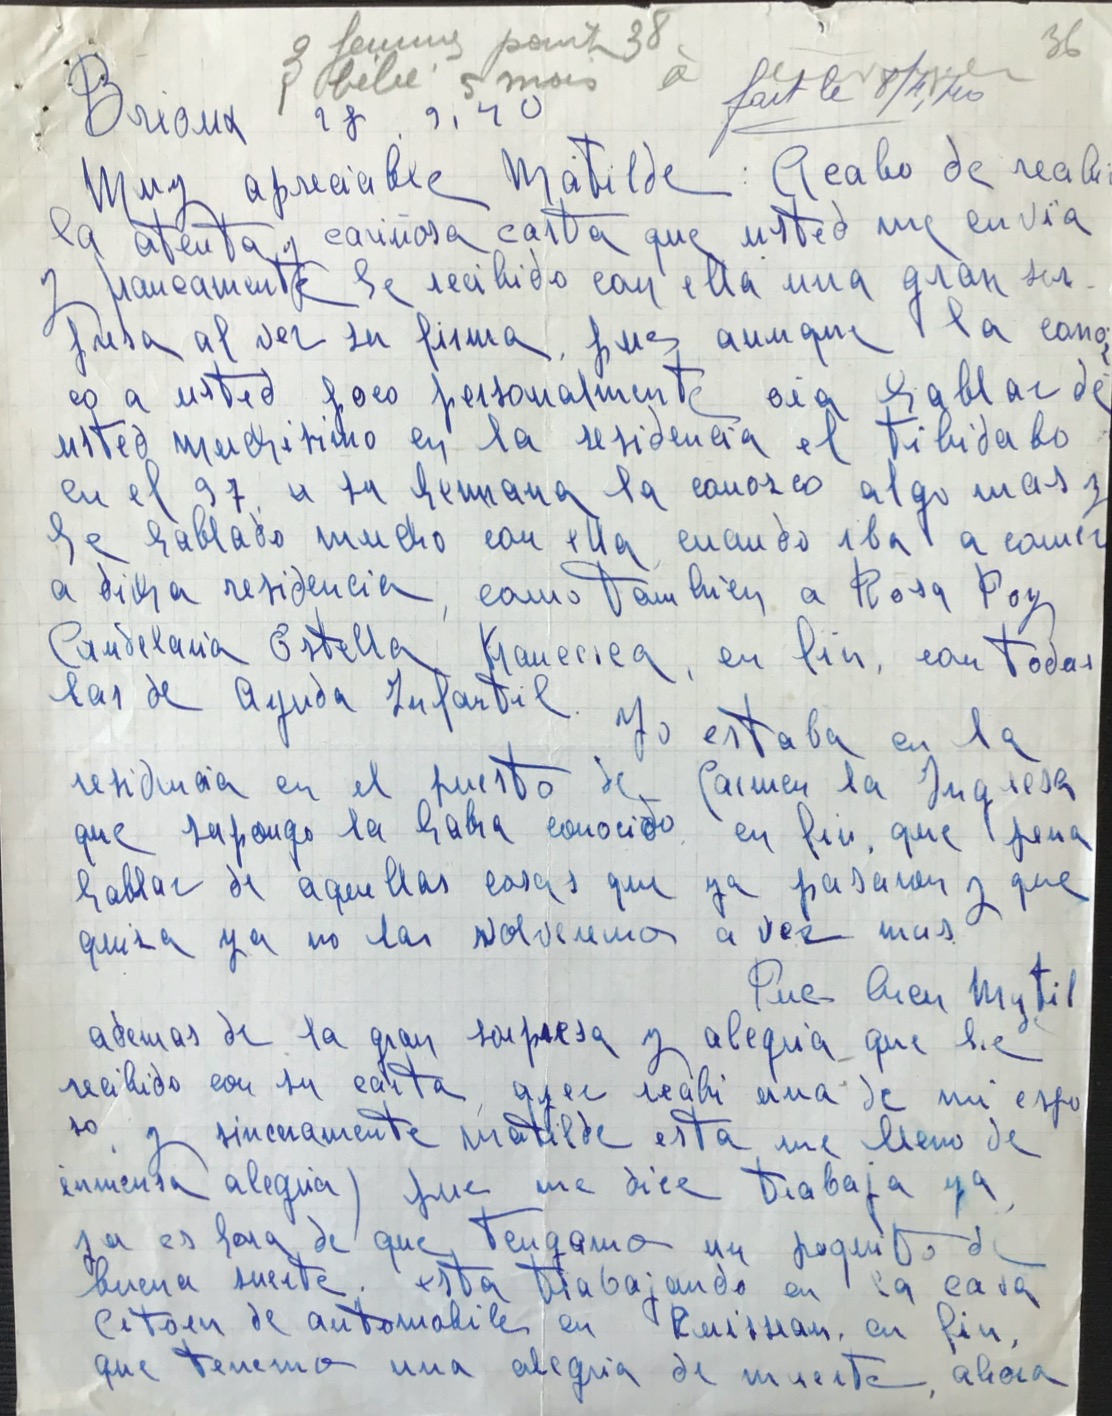 9 femmes pour le 38
1 bébé 5 mois à
36
fait le 8/4/40
Brioux 28.3.40
Muy apreciable Matilde: Acabo de recibi
la atenta y cariñosa carta que usted me envia
y francamente he recibido con ella una gran sor-
presa al ver su firma, pues aunque la conoz
co a usted poco personalmente oia hablar de
usted muchisimo en la residencia el tibidabo
en el 37, a su hermana la conozco algo mas y
he hablado mucho con ella cuando iba a comer
a dicha residencia, como tambien a Rosa Poy
Candelaria Estella Francesca, en fin, con todas
las de Ayuda Infantil.
Yo estaba en la
residencia en el puesto de Carmen la Inglesa
que supongo la habra conocido. en fin, que pena
hablar de aquellas cosas que ya pasaron y que
quiza ya no las volveremos a ver mas.
Pues bien Matil
de
ademas de la gran sorpresa y alegria que he
recibido con su carta, ayer recibi una de mi espo
so, y sinceramente matilde esta me lleno de
inmensa alegria) pues me dice trabaja ya,
ya es hora de que tengamos un poquito de
buena suerte. esta trabajando en la casa
Citoen de automobiles en en fin,
que tenemos una alegria de muerte, ahora